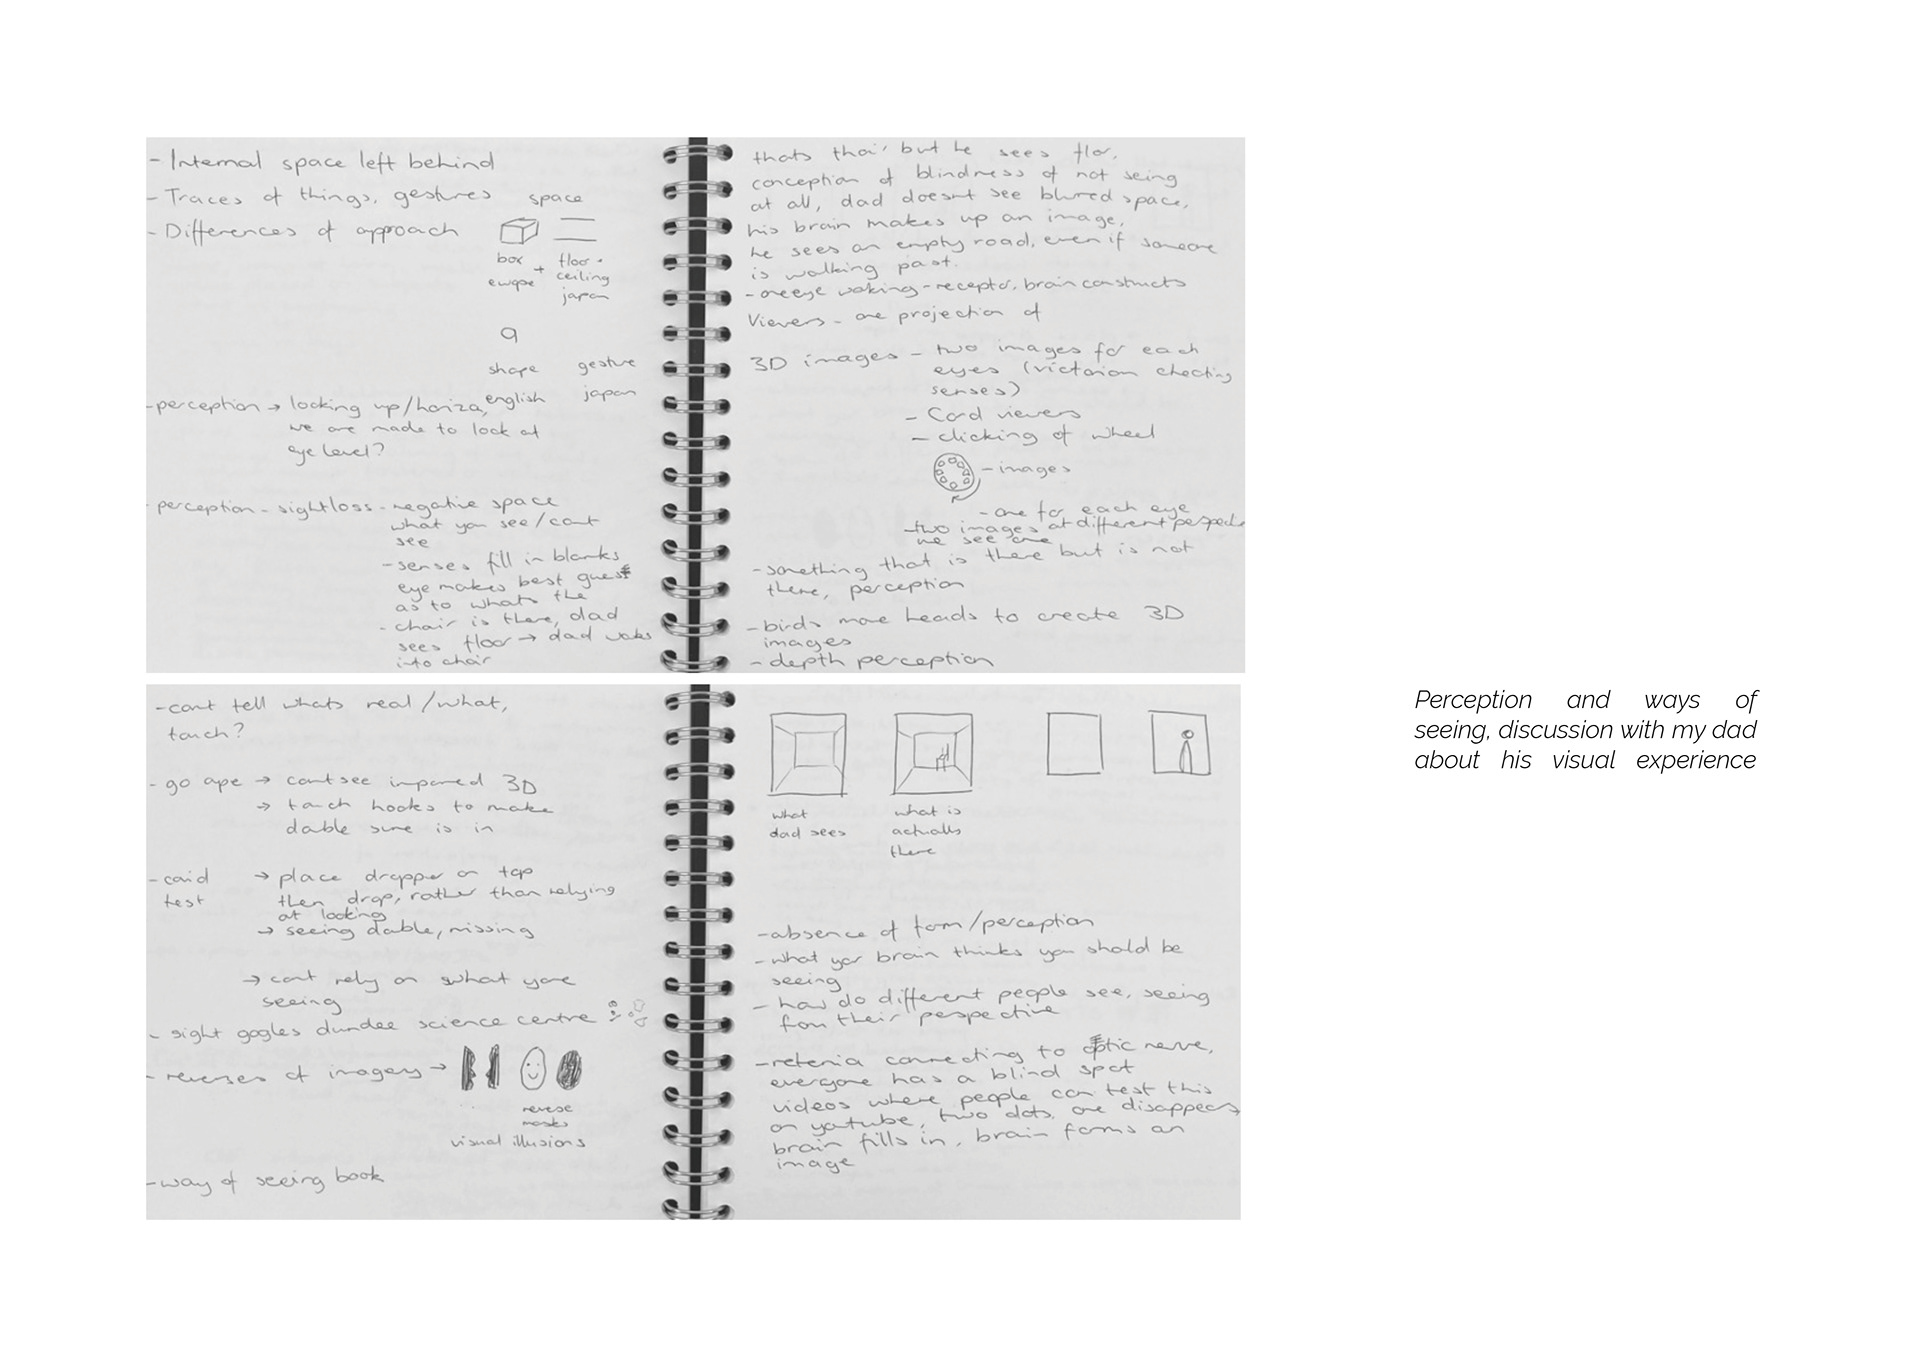 - Internal space left behind
- Traces of things, gestures
- Differences of approach
space
box
europe
+
floor +
ceiling
japan
shape
english
gesture
japan
- perception → looking up/horiza,
we are made to look at
eye level?
- perception - sightloss - negative space
what you see/cant
see
- senses fill in blanks
eye makes best guess
as to whats the
- chair is there, dad
sees floor → dad walks
into chair
thats thar but he sees flor,
conception of blindness of not seing
at all, dad doesnt see blured space,
his brain makes up an image,
he sees an empty road, even if someone
is walking past.
- one eye woking - receptor, brain constructs
Viewers - one projection of
3D images - two images for each
eyes (victorian checting
senses)
- Card viewers
- clicking of wheel
- images
- one for each eye
- two images at different perspecti
we see one
- something that is there but is not
there, perception
- birds move heads to create 3D
images
- depth perception
- cant tell whats real/what,
touch?
- go ape → cant see impared 3D
→ touch hooks to make
double sure is in
- covid
test
→ place dropper on top
then drop, rather than relying
at looking
→ seeing double, missing
→ cant rely on what youre
seeing
- sight gogles dundee science centre
- reverses of imagery →
reverse
masks
visual illusions
- way of seeing book
what
dad sees
what is
actually
there
- absence of form/perception
- what your brain thinks you should be
seeing
- how do different people see, seeing
from their perspective
- retenia connecting to optic nerve,
everyone has a blind spot
videos where people can test this
on youtube, two dots, one disappears
brain fills in, brain forms an
image
Perception and ways of
seeing, discussion with my dad
about his visual experience